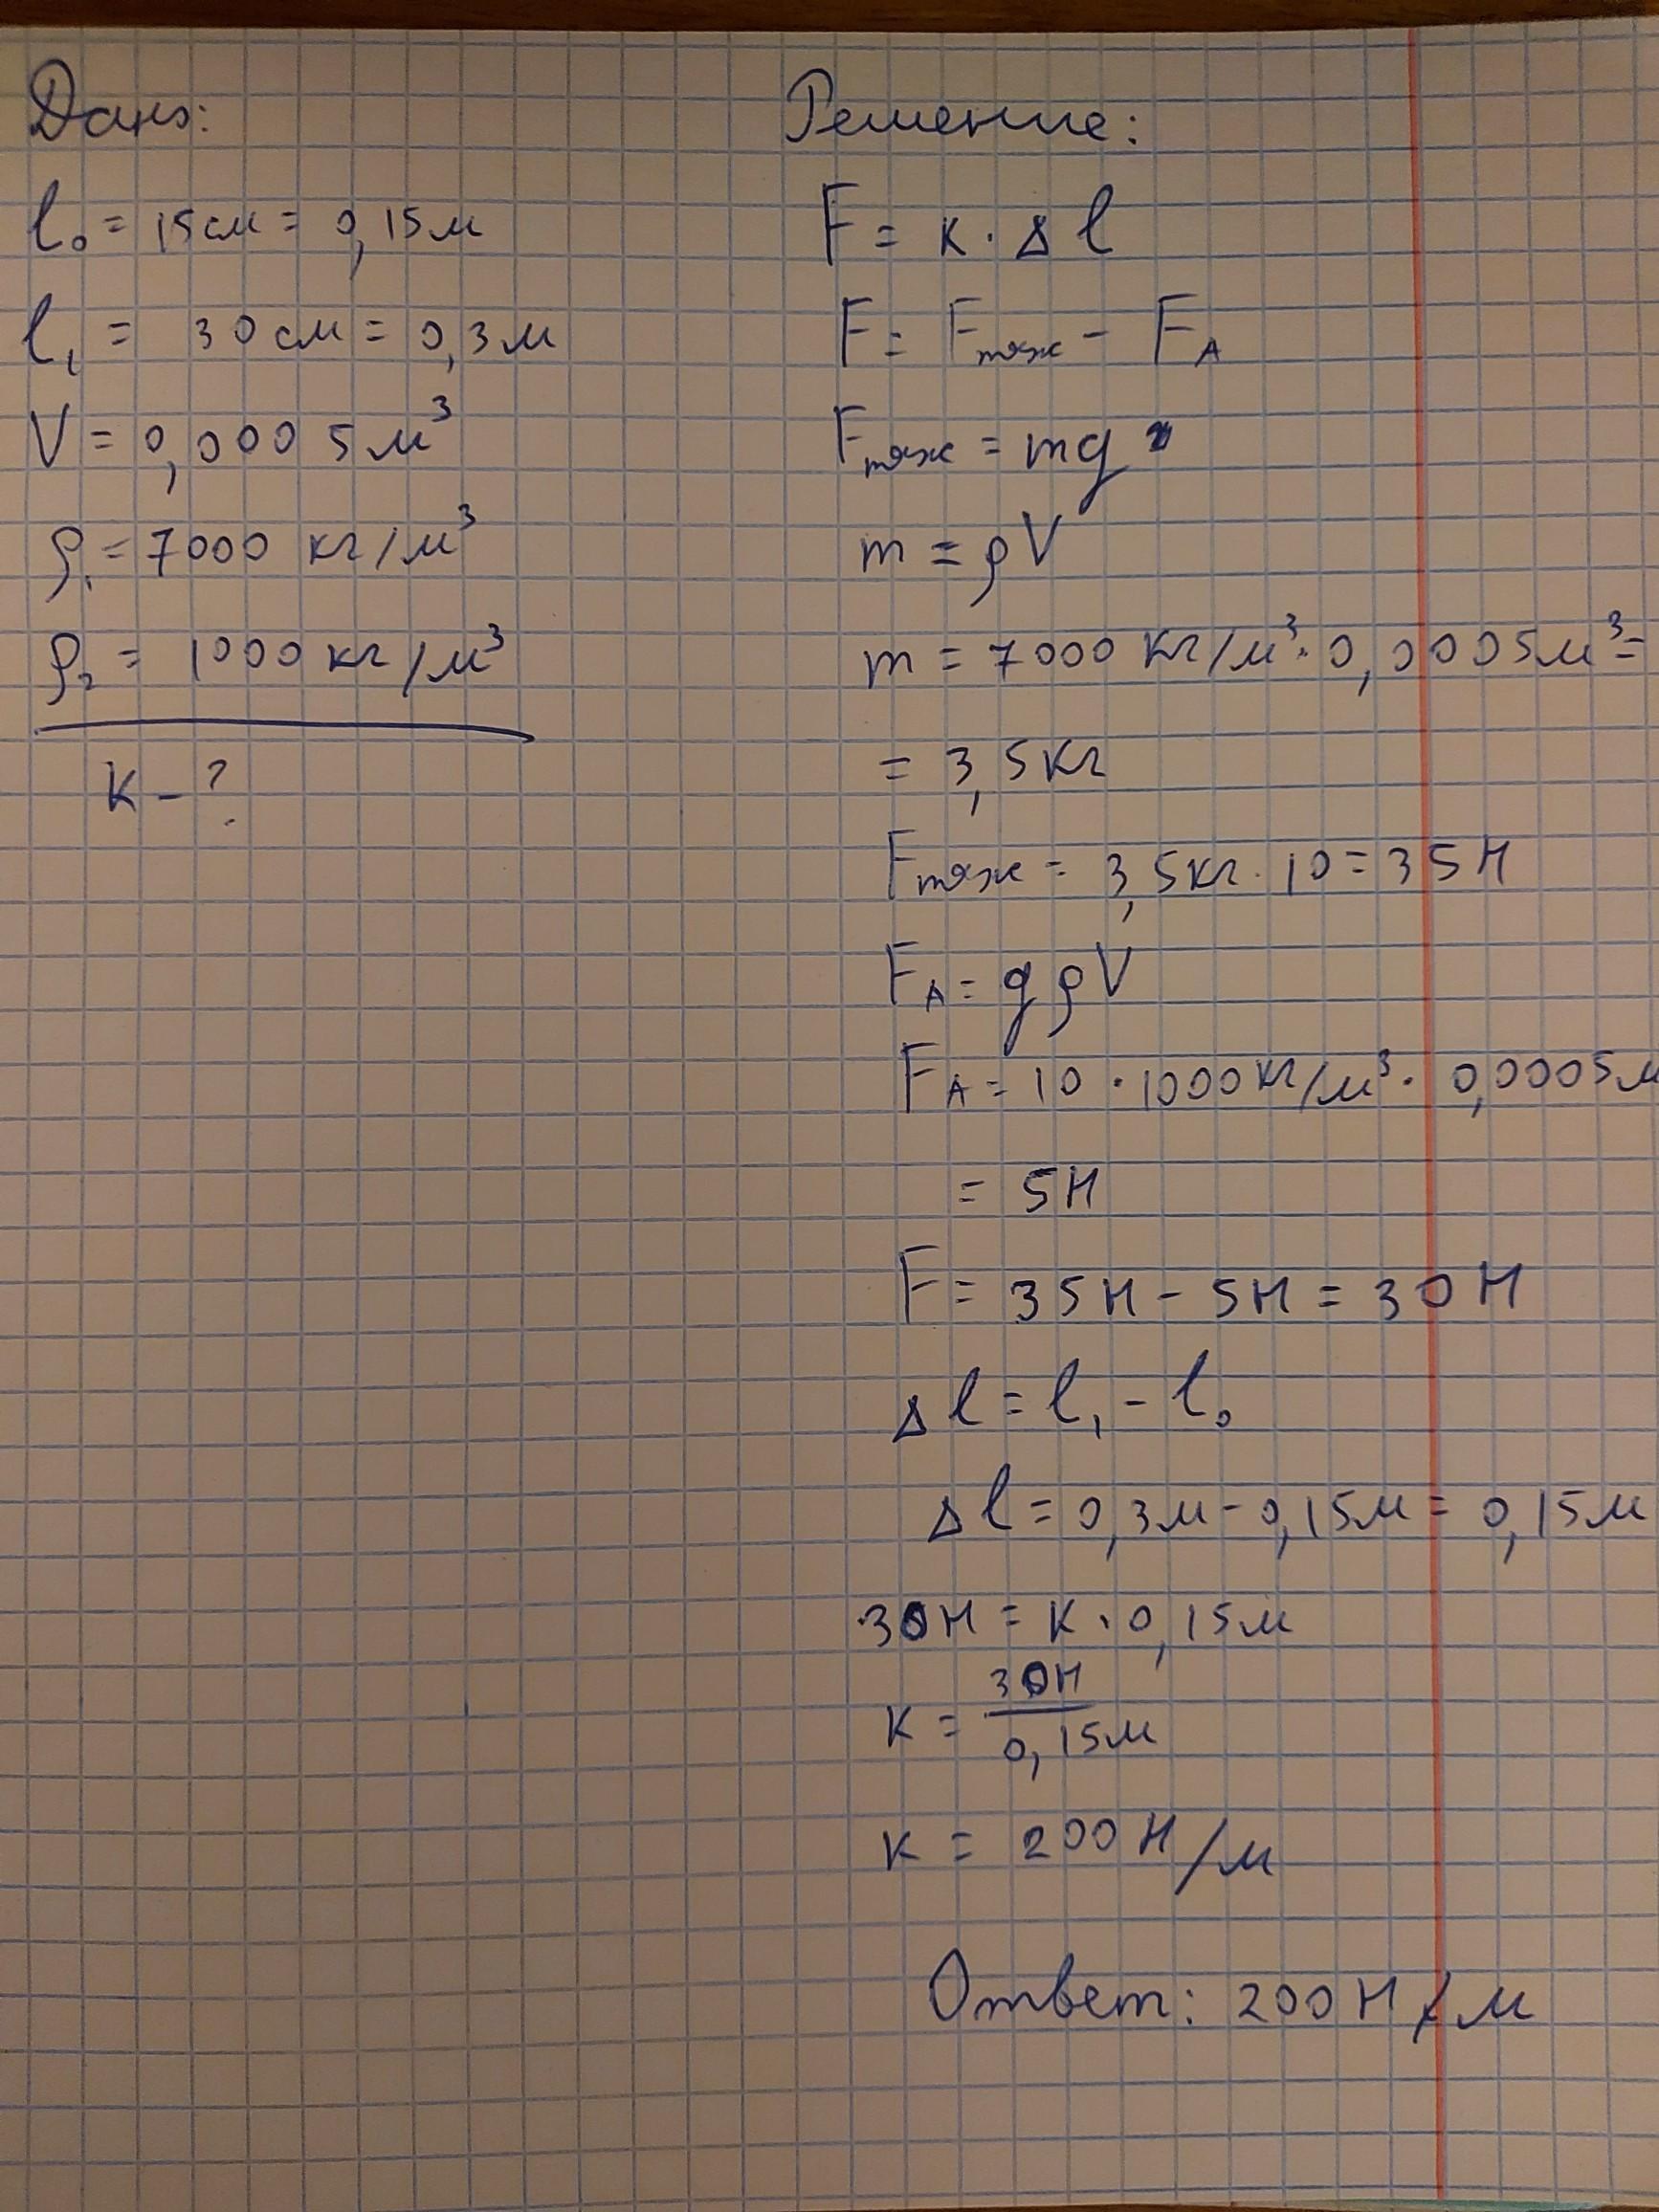 Дано:
l₀ = 15 см = 0,15 м
l₁ = 30 см = 0,3 м
V = 0,0005 м³
ρ₁ = 7000 кг/м³
ρ₂ = 1000 кг/м³
К - ?
Решение:
F = к · Δl
F = Fтяж - FА
Fтяж = mg
m = ρV
m = 7000 кг/м³ · 0,0005 м³ =
= 3,5 кг
Fтяж = 3,5 кг · 10 = 35 Н
FА = gρV
FА = 10 · 1000 кг/м³ · 0,0005 м
= 5 Н
F = 35 Н - 5 Н = 30 Н
Δl = l₁ - l₀
Δl = 0,3 м - 0,15 м = 0,15 м
30 Н = к · 0,15 м
к = 30 Н / 0,15 м
к = 200 Н/м
Ответ: 200 Н/м